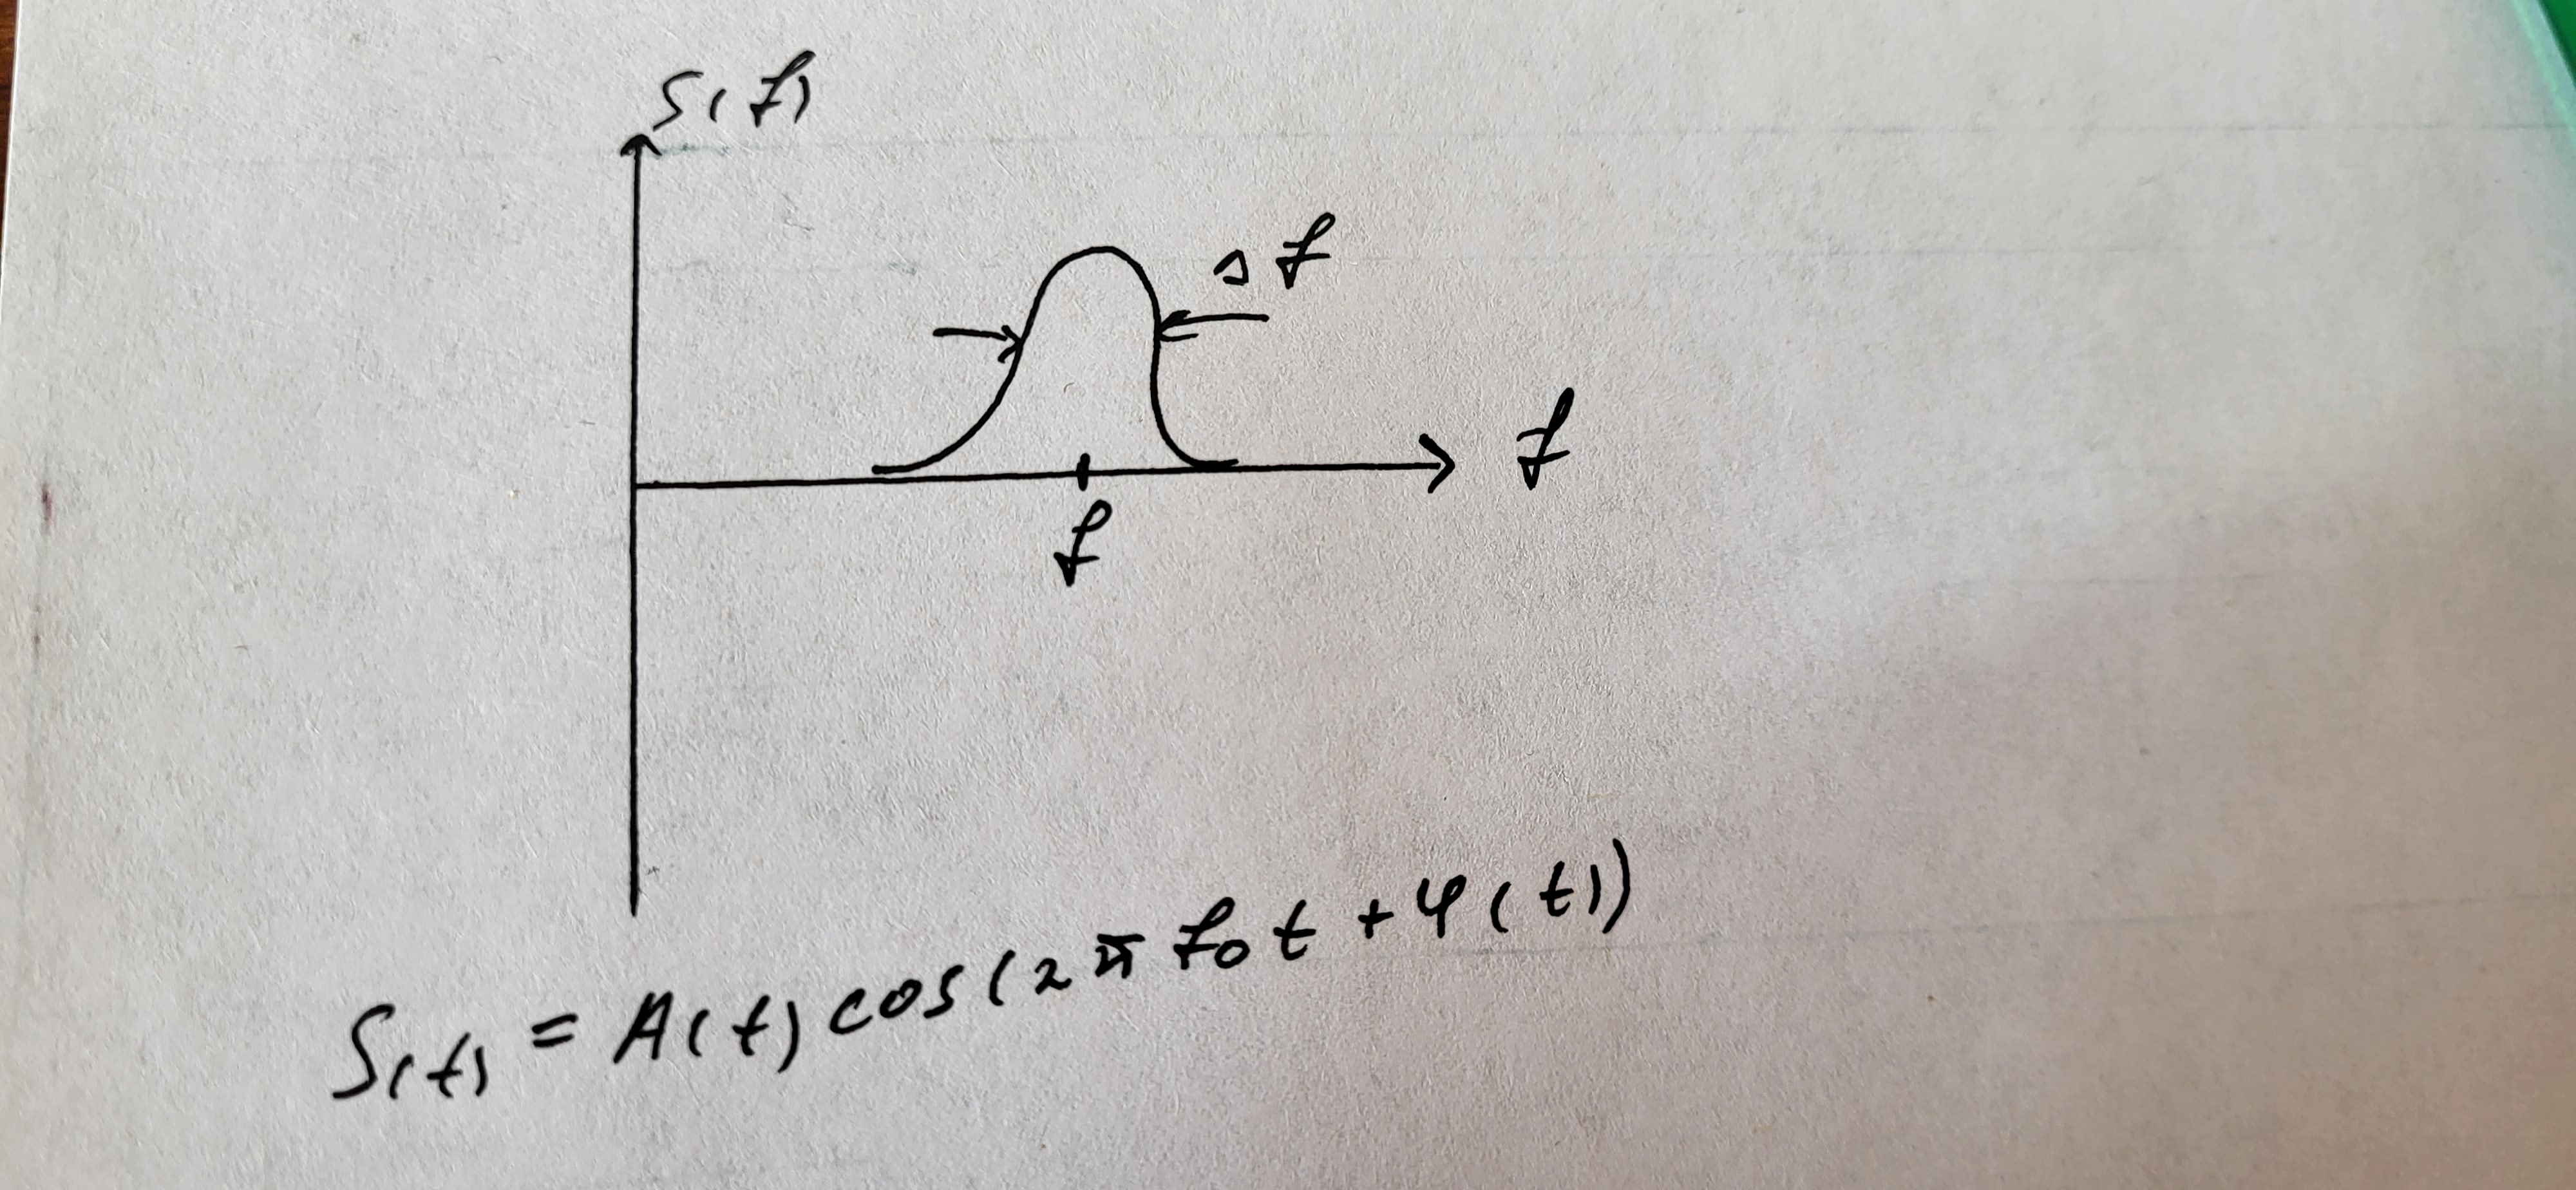 S(f)
Δf
f
f
S(t) = A(t) cos(2π f₀ t + φ(t))